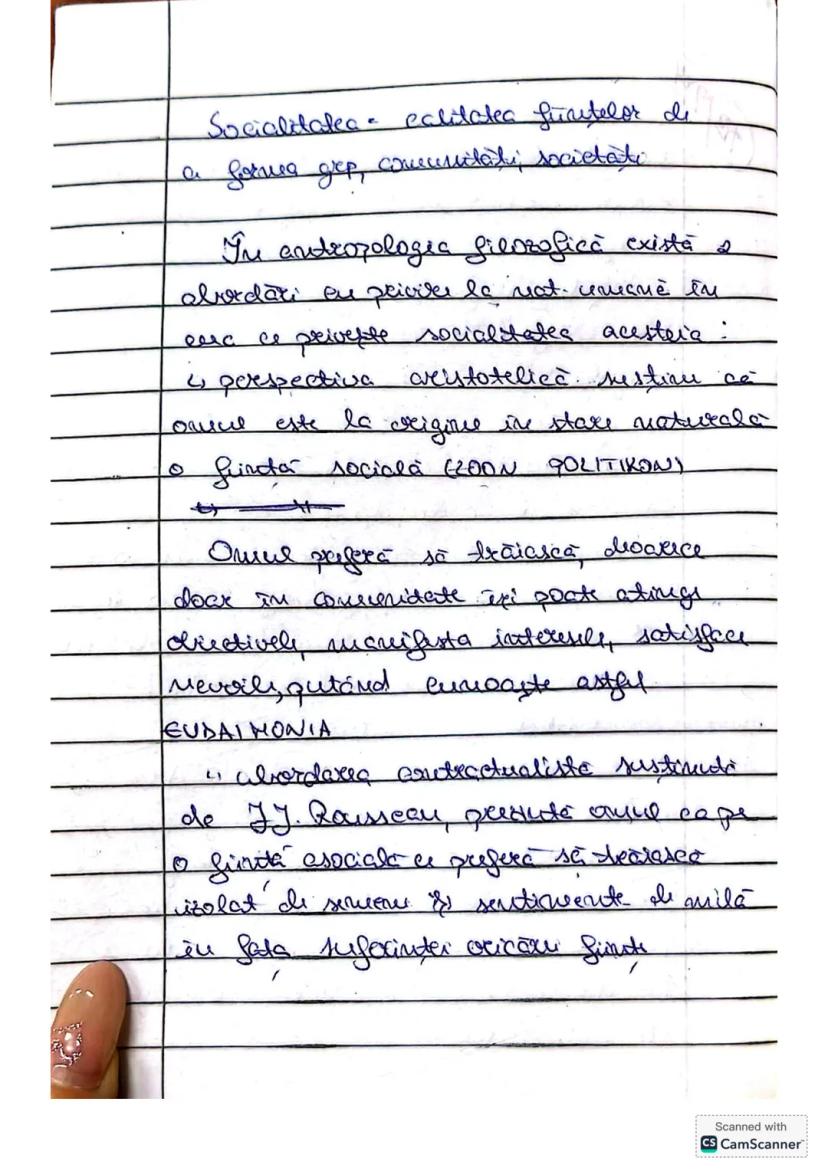 Socialitatea - calitatea ființelor de
a forma grp, comunități, societăți
În antropologia filozofică există 2
abordări cu privire la nat. umană în
ceea ce privește socialitatea acesteia :
↳ perspectiva aristotelică susține că
omul este la origine în stare naturală
o ființă socială (ZOON POLITIKON)
Omul preferă să trăiască, deoarece
doar în comunitate își poate atinge
obiectivele, manifesta interesele, satisface
nevoile, putând cunoaște astfel
EUDAIMONIA
↳ abordarea contractualistă susținută
de J.J. Rousseau, prezintă omul ca pe
o ființă asocială ce preferă să trăiască
izolat de semeni și sentimente de milă
în fața suferinței oricărei ființe
Scanned with
CS CamScanner